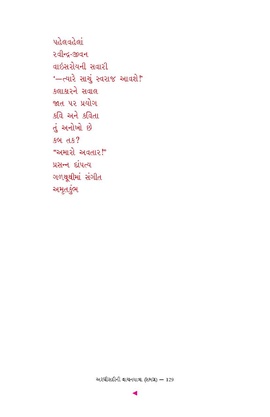 પહેલવહેલાં
રવીન્દ્ર-જીવન
વાઈસરોયની સવારી
‘—ત્યારે સાચું સ્વરાજ આવશે!’
કલાકારને સવાલ
જાત પર પ્રયોગ
કવિ અને કવિતા
તું અનોખો છે
કબ તક?
“અમારો અવતાર!”
પ્રસન્ન દાંપત્ય
ગળથૂથીમાં સંગીત
અમૃતકુંભ
અરધીસદીની વાચનયાત્રા (સમગ્ર) — 129